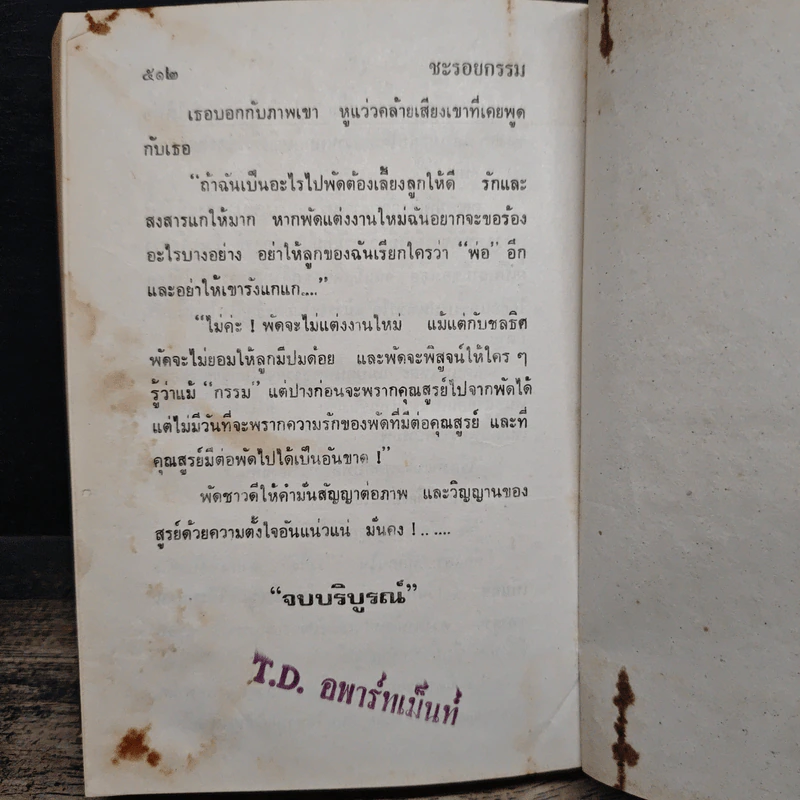 ๕๑๒ ชะรอยกรรม
เธอบอกกับภาพเขา หูแว่วคล้ายเสียงเขาที่เคยพูด
กับเธอ
“ถ้าฉันเป็นอะไรไปพัดต้องเลี้ยงลูกให้ดี รักและ
สงสารแกให้มาก หากพัดแต่งงานใหม่ฉันอยากจะขอร้อง
อะไรบางอย่าง อย่าให้ลูกของฉันเรียกใครว่า “พ่อ” อีก
และอย่าให้เขารังแกแก....”
“ไม่ค่ะ ! พัดจะไม่แต่งงานใหม่ แม้แต่กับชลธิศ
พัดจะไม่ยอมให้ลูกมีปมด้อย และพัดจะพิสูจน์ให้ใคร ๆ
รู้ว่าแม้ “กรรม” แต่ปางก่อนจะพรากคุณสูรย์ไปจากพัดได้
แต่ไม่มีวันที่จะพรากความรักของพัดที่มีต่อคุณสูรย์ และที่
คุณสูรย์มีต่อพัดไปได้เป็นอันขาด !”
พัดชาวดีให้คำมั่นสัญญาต่อภาพ และวิญญานของ
สูรย์ด้วยความตั้งใจอันแน่วแน่ มั่นคง ! .. ....
“จบบริบูรณ์”
T.D. อพาร์ทเม็นท์